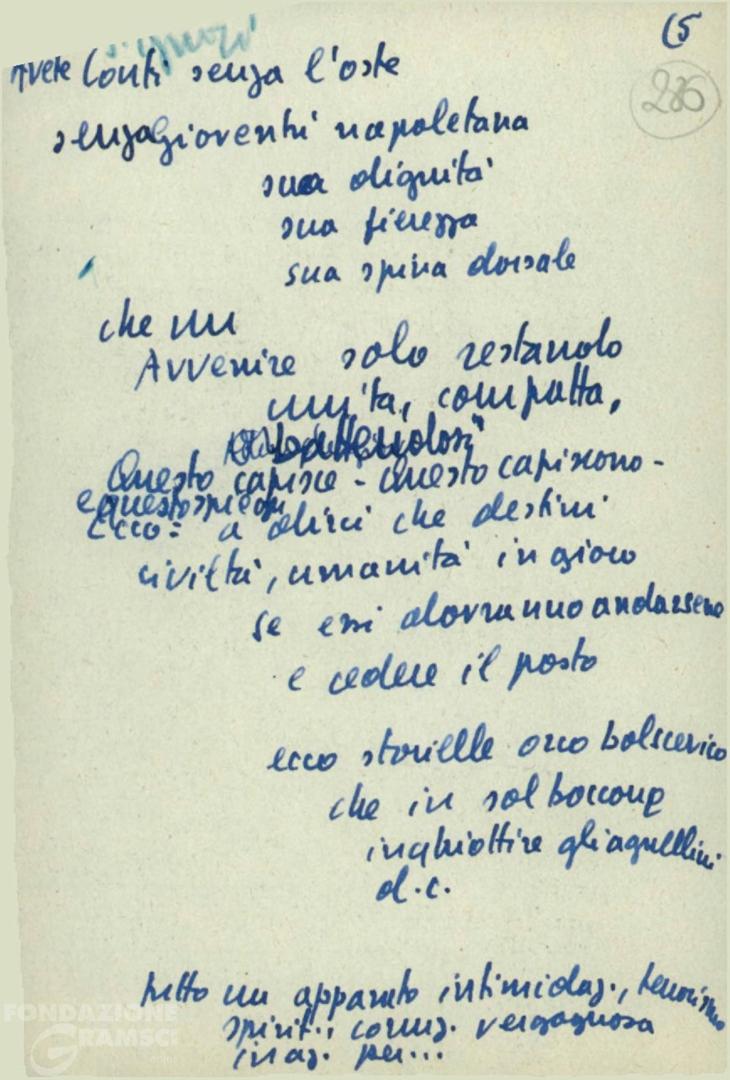 15
236
signori
avete Conti senza l'oste
senza gioventù napoletana
sua dignità
sua fierezza
sua spina dorsale
che un
Avvenire solo restando
unita, compatta,
battendosi
Questo capisce - Questo capiscono -
e questo spiega
Ecco: a dirci che destini
civiltà, umanità in gioco
se essi dovranno andarsene
e cedere il posto
ecco storielle orco bolscevico
che in sol boccone
inghiottire gli agnellini
d.c.
tutto un apparato intimidaz., terrorismo
spirit., corruz. vergognosa
in az. per...
FONDAZIONE
GRAMSCI